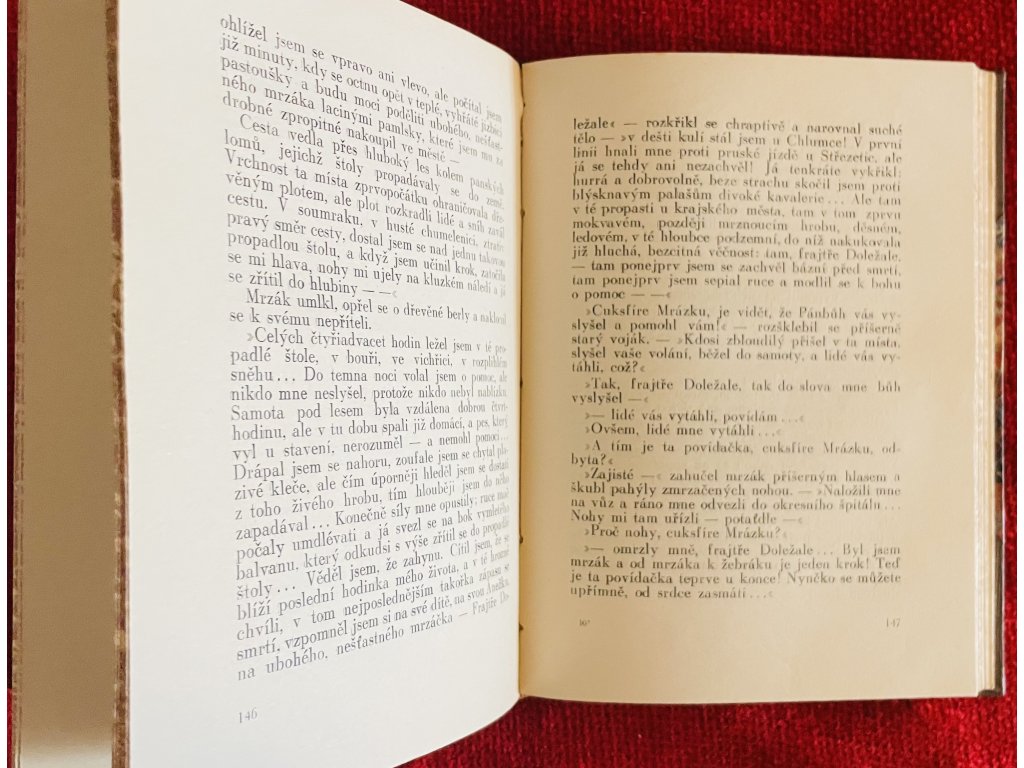 ohlížel jsem se vpravo ani vlevo, ale počítal jsem
již minuty, kdy se octnu opět v teplé, vyhřáté jizbici
pastoušky a budu moci poděliti ubohého, nešťast-
ného mrzáka lacinými pamlsky, které jsem mu za
drobné zpropitné nakoupil ve městě —
Cesta vedla přes hluboký les kolem panských
lomů, jejichž štoly propadávaly se do země.
Vrchnost ta místa zprvopočátku ohraničovala dře-
věným plotem, ale plot rozkradli lidé a sníh zavál
cestu. V soumraku, v husté chumelenici, ztrativ
pravý směr cesty, dostal jsem se nad jednu takovou
propadlou štolu, a když jsem učinil krok, zatočila
se mi hlava, nohy mi ujely na kluzkém náledí a já
se zřítil do hlubiny — —«
Mrzák umlkl, opřel se o dřevěné berly a naklonil
se k svému nepříteli.
»Celých čtyřiadvacet hodin ležel jsem v té pro-
padlé štole, v bouři, ve vichřici, v rozplihlém
sněhu... Do temna noci volal jsem o pomoc, ale
nikdo mne neslyšel, protože nikdo nebyl nablízku.
Samota pod lesem byla vzdálena dobrou čtvrt-
hodinu, ale v tu dobu spali již domácí, a pes, který
vyl u stavení, nerozuměl — a nemohl pomoci...
Drápal jsem se nahoru, zoufale jsem se chytal pla-
zivé kleče, ale čím úporněji hleděl jsem se dostati
z toho živého hrobu, tím hlouběji jsem do něho
zapadával... Konečně síly mne opustily; ruce moje
počaly umdlévati a já svezl se na bok vymletého
balvanu, který odkudsi s výše zřítil se do propadlé
štoly... Věděl jsem, že zahynu. Cítil jsem, že se
blíží poslední hodinka mého života, a v té hrozné
chvíli, v tom nejposlednějším takořka zápasu se
smrtí, vzpomněl jsem si na své dítě, na svou Anežku,
na ubohého, nešťastného mrzáčka — Frajtře Do-
146
ležale« — rozkřikl se chraptivě a narovnal suché
tělo — »v dešti kulí stál jsem u Chlumce! V první
linii hnali mne proti pruské jízdě u Střezetic, ale
já se tehdy ani nezachvěl! Já tenkráte vykřikl:
hurrá a dobrovolně, beze strachu skočil jsem proti
blýsknavým palašům divoké kavalerie... Ale tam
v té propasti u krajského města, tam v tom zprvu
mokvavém, později mrznoucím hrobu, děsném,
ledovém, v té hloubce podzemní, do níž nakukovala
již hluchá, bezcitná věčnost: tam, frajtře Doležale,
— tam ponejprv jsem se zachvěl bázní před smrtí,
tam ponejprv jsem sepial ruce a modlil se k bohu
o pomoc — —«
»Cuksfíre Mrázku, je vidět, že Pánbůh vás vy-
slyšel a pomohl vám!« — rozšklebil se příšerně
starý voják. — »Kdosi zbloudilý přišel v ta místa,
slyšel vaše volání, běžel do samoty, a lidé vás vy-
táhli, což?«
»Tak, frajtře Doležale, tak do slova mne bůh
vyslyšel —«
»— lidé vás vytáhli, povídám...«
»Ovšem, lidé mne vytáhli...«
»A tím je ta povídačka, cuksfíre Mrázku, od-
byta?«
»Zajisté —« zahučel mrzák příšerným hlasem a
škubl pahýly zmrzačených nohou. — »Naložili mne
na vůz a ráno mne odvezli do okresního špitálu...
Nohy mi tam uřízli — potaďdle —«
»Proč nohy, cuksfíre Mrázku?«
»— omrzly mně, frajtře Doležale... Byl jsem
mrzák a od mrzáka k žebráku je jeden krok! Teď
je ta povídačka teprve u konce! Nynčko se můžete
upřímně, od srdce zasmáti...«
10*
147